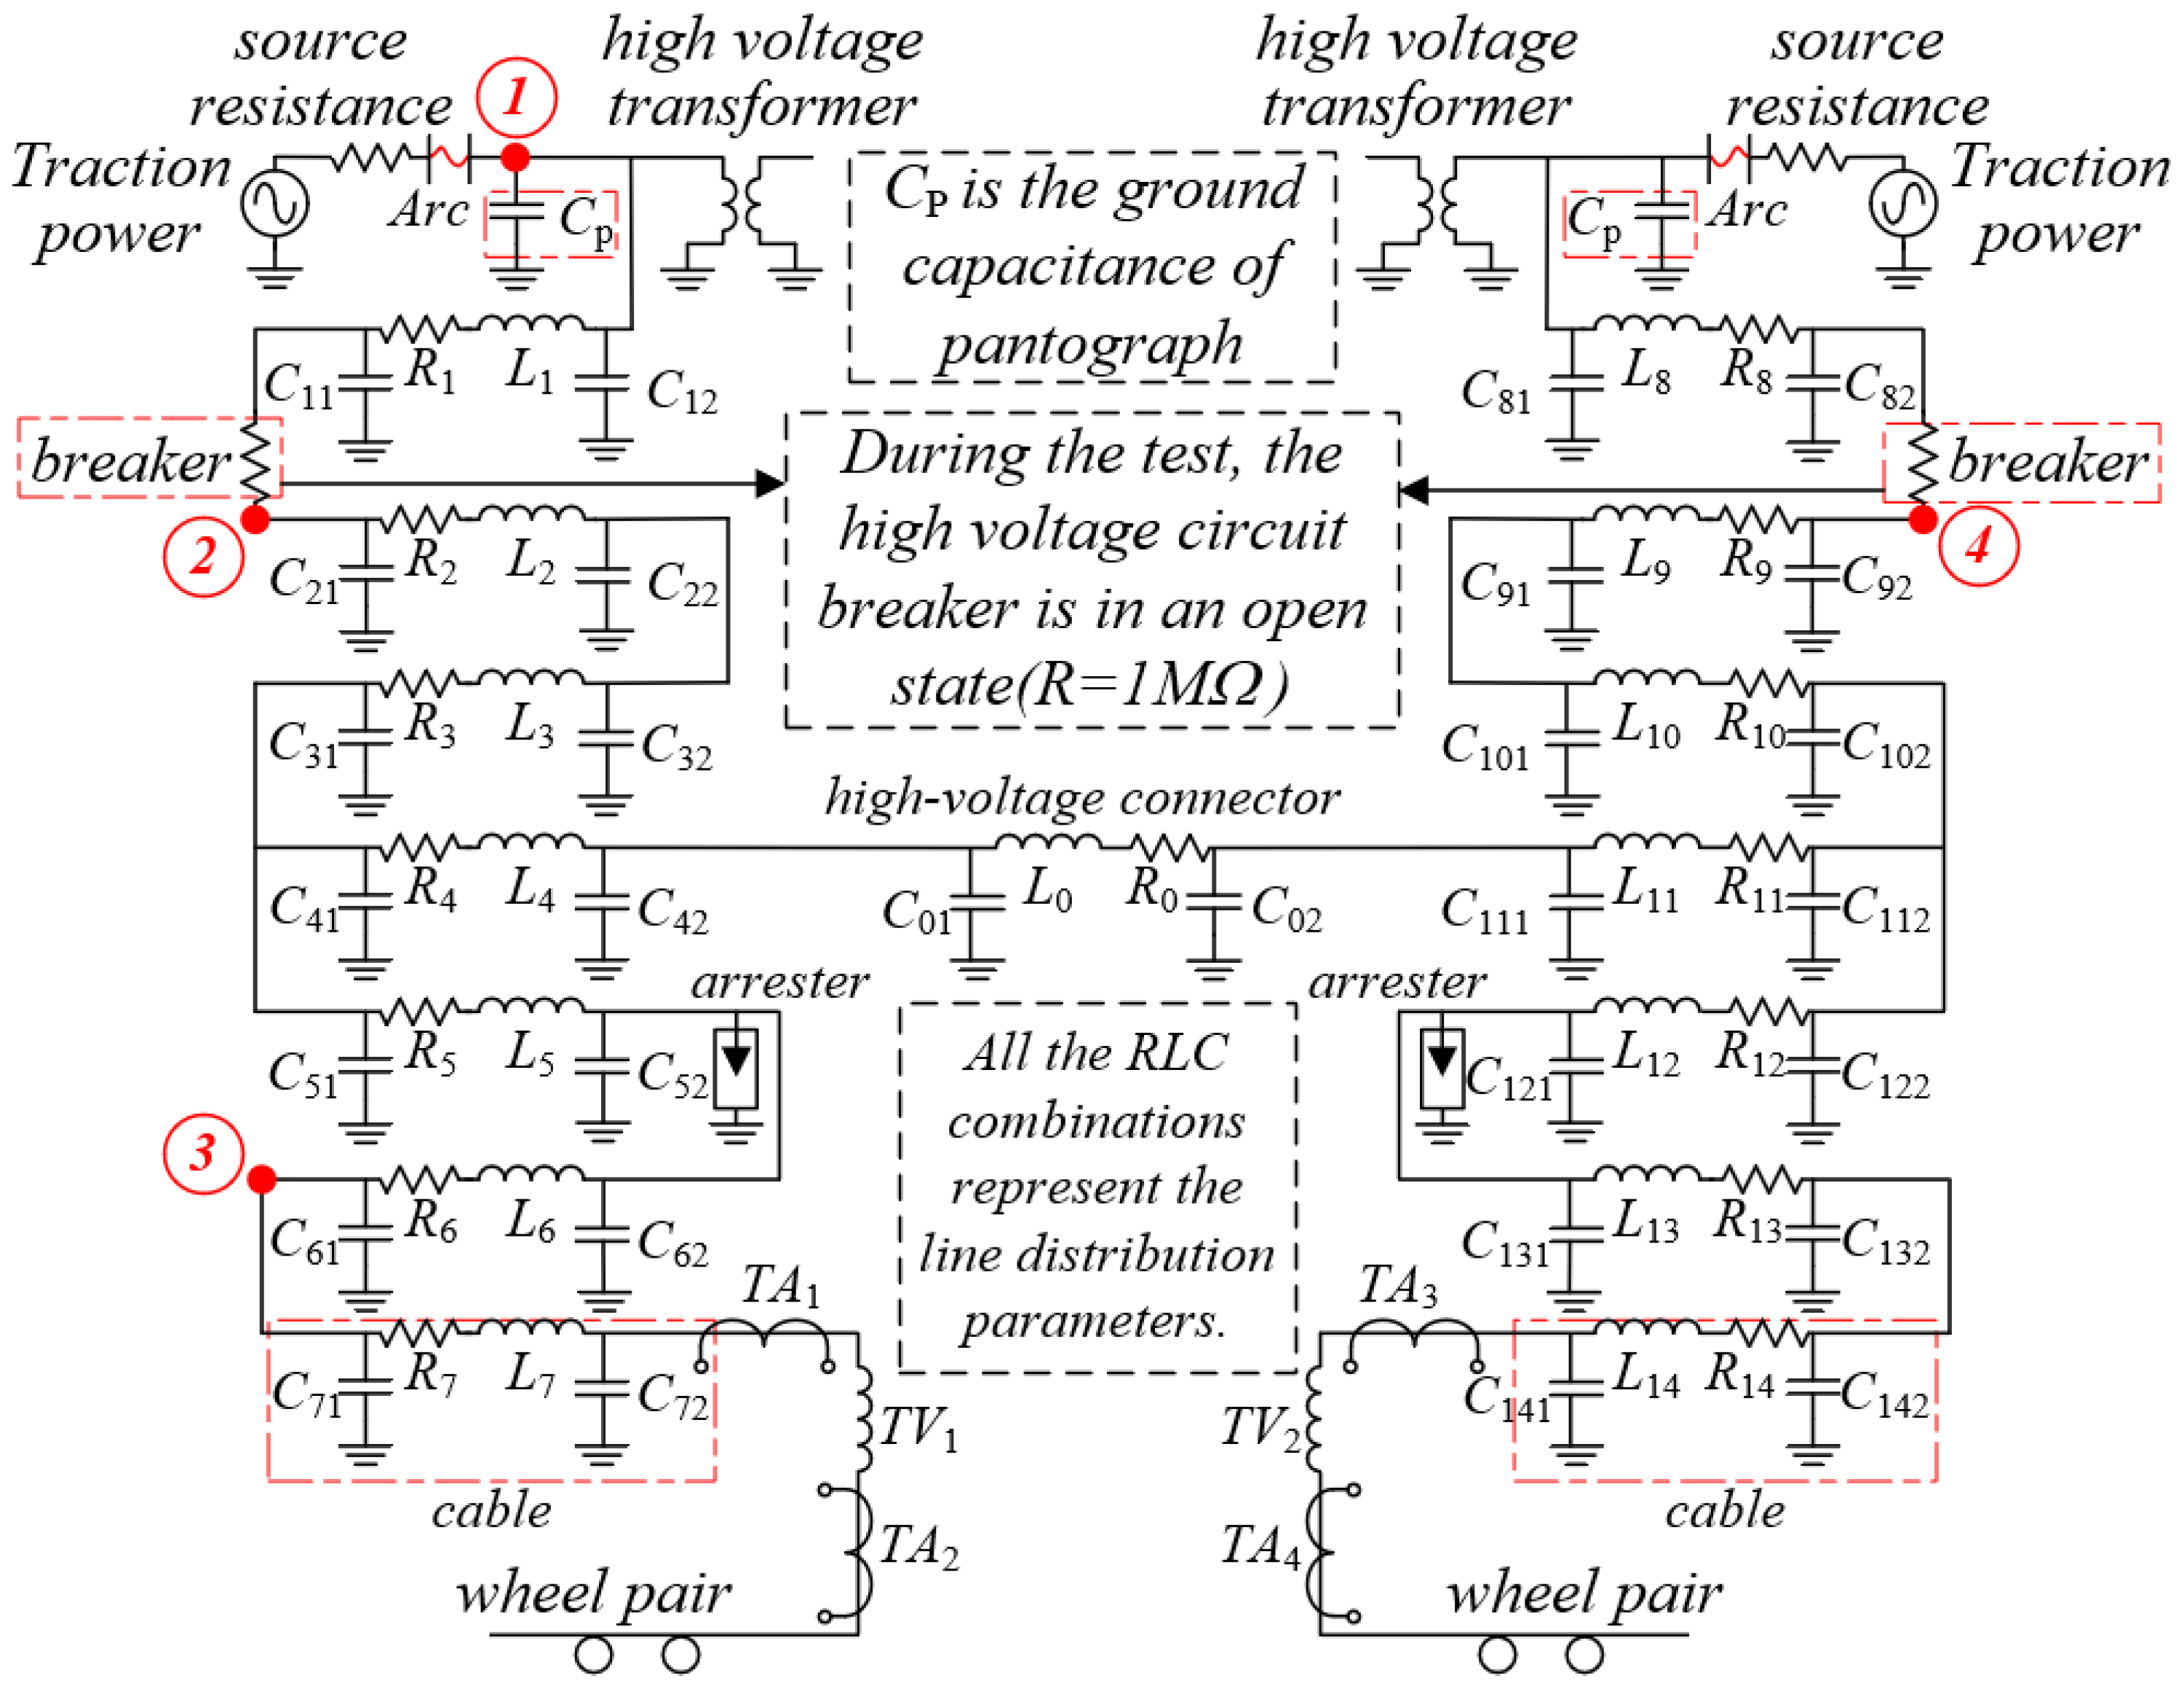 source
resistance
1
high voltage
transformer
high voltage
transformer
source
resistance
Traction
power
Arc
Cp
CP is the ground
capacitance of
pantograph
Cp
Arc
Traction
power
C11
R1
L1
C12
C81
L8
R8
C82
breaker
During the test, the
high voltage circuit
breaker is in an open
state(R=1MΩ)
breaker
2
C21
R2
L2
C22
C91
L9
R9
C92
4
C31
R3
L3
C32
C101
L10
R10
C102
high-voltage connector
C41
R4
L4
C42
C01
L0
R0
C02
C111
L11
R11
C112
arrester
arrester
C51
R5
L5
C52
All the RLC
combinations
represent the
line distribution
parameters.
C121
L12
R12
C122
3
C61
R6
L6
C62
C131
L13
R13
C132
TA1
TA3
C71
R7
L7
C72
C141
L14
R14
C142
TV1
TV2
cable
cable
TA2
TA4
wheel pair
wheel pair